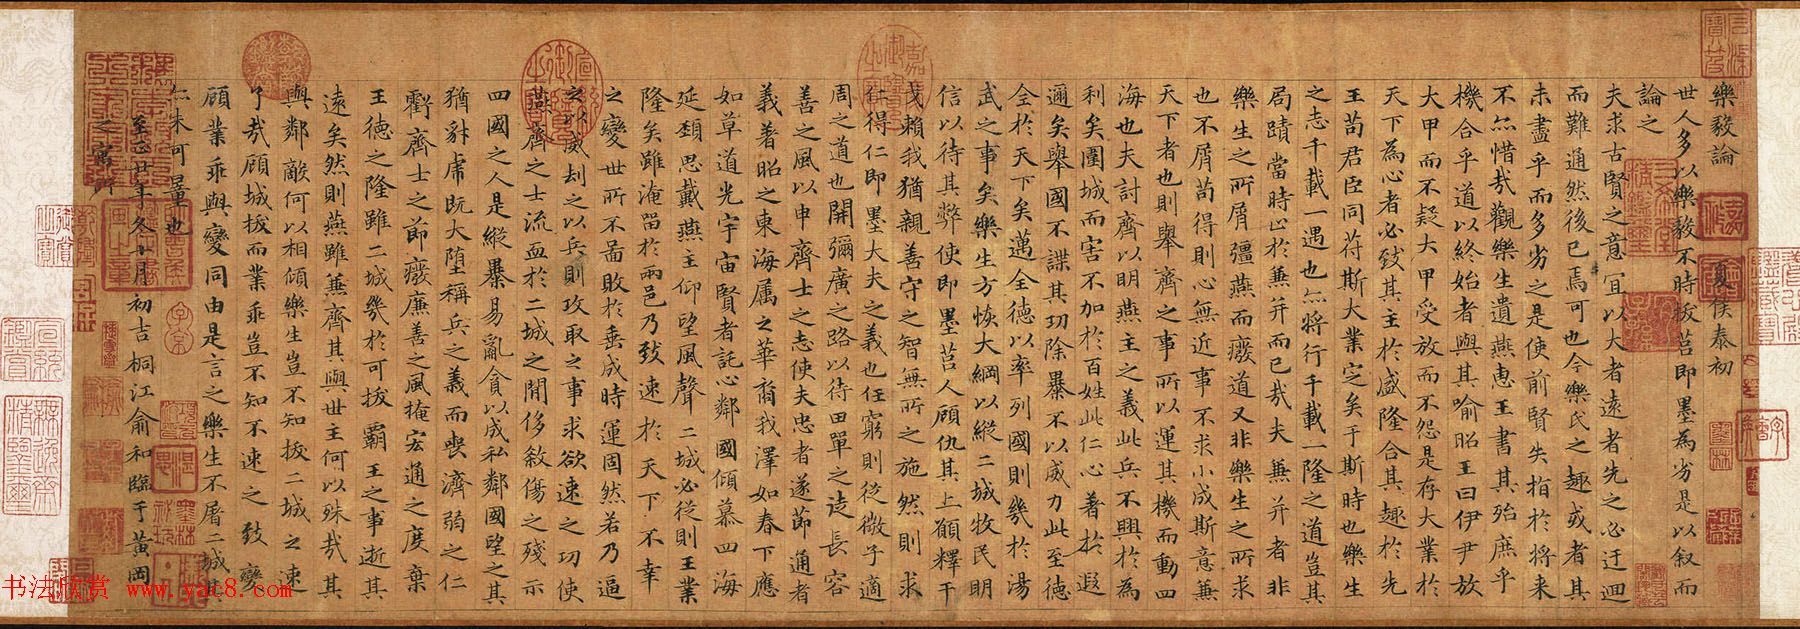 樂毅論 夏侯泰初
世人多以樂毅不時拔莒即墨為劣是以叙而
論之
夫求古賢之意宜以大者遠者先之必迂迴
而難通然後已焉可也今樂氏之趣或者其
未盡乎而多劣之是使前賢失指於將来
不亦惜哉觀樂生遺燕惠王書其殆庶乎
機合乎道以終始者與其喻昭王曰伊尹放
大甲而不疑大甲受放而不怨是存大業於
天下為心者必致其主於盛隆合其趣於先
王苟君臣同苻斯大業定矣于斯時也樂生
之志千載一遇也亦將行千載一隆之道豈其
局蹟當時止於兼并而已哉夫兼并者非
樂生之所屑彊燕而癈道又非樂生之所求
也不屑苟得則心無近事不求小成斯意兼
天下者也則舉齊之事所以運其機而動四
海也夫討齊以明燕主之義此兵不興於為
利矣圍城而害不加於百姓此仁心著於遐
邇矣舉國不謀其功除暴不以威力此至德
全於天下矣邁全德以率列國則幾於湯
武之事矣樂生方恢大綱以縱二城牧民明
信以待其弊使即墨莒人顧仇其上願釋干
戈賴我猶親善守之智無所之施然則求
仁得仁即墨大夫之義也任窮則從微子適
周之道也開彌廣之路以待田單之徒長容
善之風以申齊士之志使夫忠者遂節通者
義著昭之東海属之華裔我澤如春下應
如草道光宇宙賢者託心鄰國傾慕四海
延頸思戴燕主仰望風聲二城必從則王業
隆矣雖淹留於兩邑乃致速於天下不幸
之變世所不啚敗於垂成時運固然若乃逼
之以威刧之以兵則攻取之事求欲速之功使
燕齊之士流血於二城之閒侈敘傷之殘示
四國之人是縱暴易亂貪以成私鄰國望之其
猶豺虎既大堕稱兵之義而喪濟弱之仁
虧齊士之節癈廉善之風掩宏通之度棄
王德之隆雖二城幾於可拔覇王之事逝其
遠矣然則燕雖兼齊其與世主何以殊哉其
與鄰敵何以相傾樂生豈不知拔二城之速
了哉顧城拔而業乖豈不知不速之致變
顧業乖與變同由是言之樂生不屠二城其
亦未可量也
至正廿年冬十月初吉桐江俞和臨于黃岡
之寓所
嘉慶御覽之寶
三希堂精鑑璽
宜子孫
书法欣赏 www.yac8.com